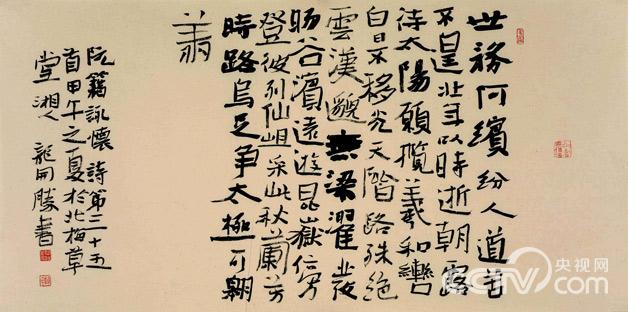 世務何繽紛人道苦
不遑壯年以時逝朝露
待太陽願攬羲和轡
白日不移光天階路殊絕
雲漢邈無梁濯髮
暘谷濱遠遊昆嶽傍
登彼列仙岨采此秋蘭芳
時路烏足争太極可翱
翔
阮籍詠懷詩第三十五
首甲午之夏於北梅草
堂湘人龍開勝書
央视网
CCTV.com